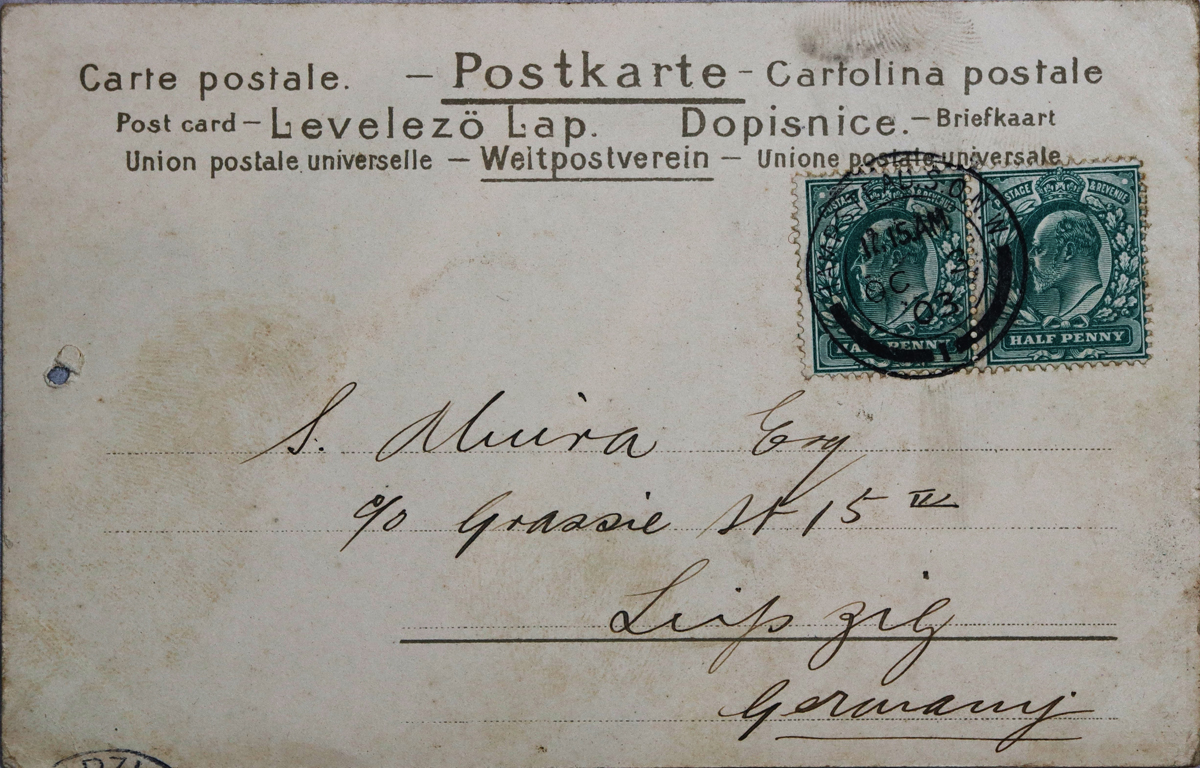 Carte postale. – Postkarte - Cartolina postale
Post card – Levelezö Lap. Dopisnice. – Briefkaart
Union postale universelle – Weltpostverein – Unione postale universale
POSTAGE & REVENUE
HALF PENNY
POSTAGE & REVENUE
HALF PENNY
S.
c/o Grassie St 15 IV
Leipzig
Germany